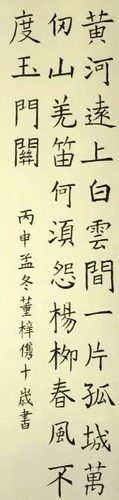 黃河遠上白雲間一片孤城萬
仞山羌笛何須怨楊柳春風不
度玉門關
丙申孟冬董梓儁十歲書